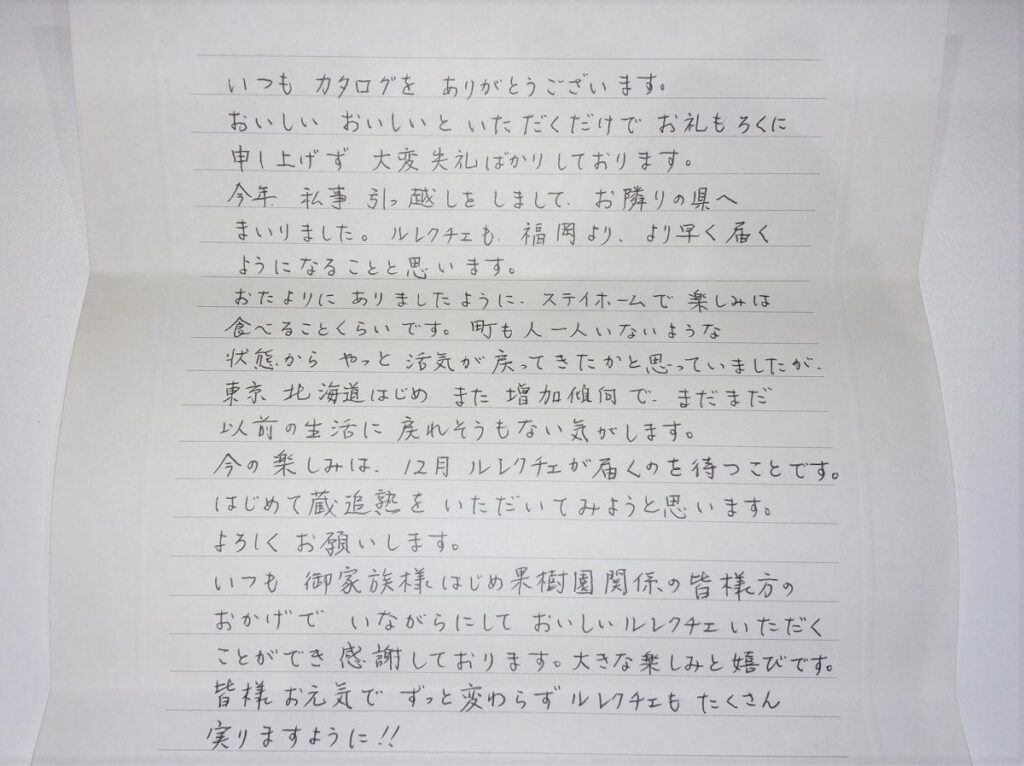 いつも カタログを ありがとうございます。
おいしい おいしいと いただくだけで お礼もろくに
申し上げず 大変失礼ばかりしております。
今年、私事 引っ越しをしまして、お隣りの県へ
まいりました。ルレクチェも、福岡より、より早く届く
ようになることと思います。
おたよりに ありましたように、ステイホームで 楽しみは
食べることくらいです。町も人一人いないような
状態から やっと 活気が戻ってきたかと思っていましたが、
東京 北海道はじめ また 増加傾向で、まだまだ
以前の生活に 戻れそうもない気がします。
今の楽しみは、12月 ルレクチェが届くのを待つことです。
はじめて蔵追熟を いただいてみようと思います。
よろしく お願いします。
いつも 御家族様はじめ果樹園関係の皆様方の
おかげで いながらにして おいしいルレクチェ いただく
ことができ 感謝しております。大きな楽しみと嬉びです。
皆様 お元気で ずっと変わらず ルレクチェも たくさん
実りますように!!